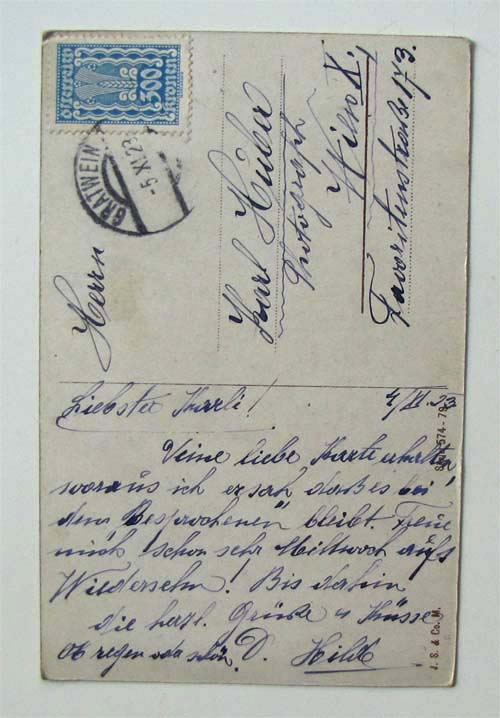 Österreich
500
Kronen
GRATWEIN
-5.XI.23
Herrn
Karl Huber
Photograph
Wien X.
Favoritenstraße 173.
Liebster Karli!
4/XI. 23
Deine liebe Karte erhalten
woraus ich ersah, daß es bei
dem Besprochenen bleibt. Freue
mich schon sehr Mittwoch aufs
Wiedersehn! Bis dahin
die herzl. Grüße u Küsse
Ob regen oda schön. D. Hilde
574-79
J. S. & Co. M.